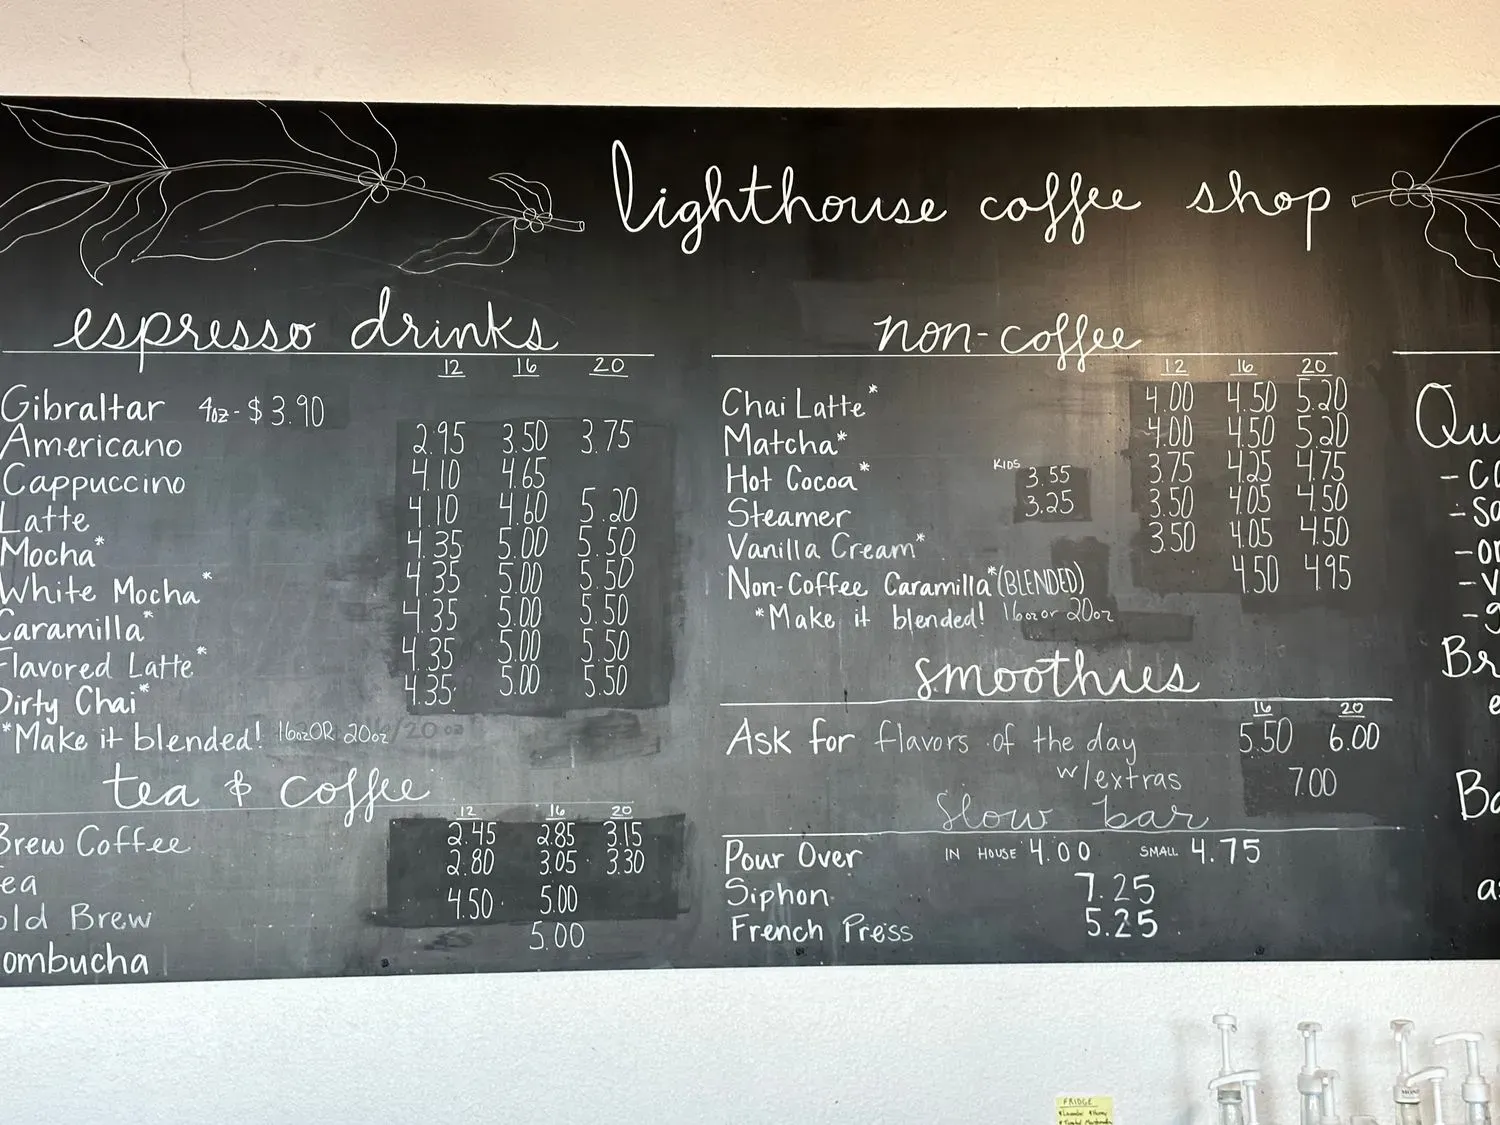 lighthouse coffee shop
espresso drinks
12 16 20
Gibraltar 4oz - $3.90
Americano 2.95 3.50 3.75
Cappuccino 4.10 4.65
Latte 4.10 4.60 5.20
Mocha* 4.35 5.00 5.50
White Mocha* 4.35 5.00 5.50
Caramilla* 4.35 5.00 5.50
Flavored Latte* 4.35 5.00 5.50
Dirty Chai* 4.35 5.00 5.50
*Make it blended! 16oz OR 20oz
tea & coffee
12 16 20
Brew Coffee 2.45 2.85 3.15
ea 2.80 3.05 3.30
old Brew 4.50 5.00
ombucha 5.00
non-coffee
12 16 20
Chai Latte* 4.00 4.50 5.20
Matcha* 4.00 4.50 5.20
Hot Cocoa* KIDS 3.55 3.75 4.25 4.75
Steamer 3.25 3.50 4.05 4.50
Vanilla Cream* 3.50 4.05 4.50
Non-Coffee Caramilla* (BLENDED) 4.50 4.95
*Make it blended! 16oz or 20oz
smoothies
16 20
Ask for flavors of the day 5.50 6.00
w/extras 7.00
slow bar
Pour Over IN HOUSE 4.00 SMALL 4.75
Siphon 7.25
French Press 5.25
Qu
- C
- So
- or
- V
- g
Br
e
Ba
as
FRIDGE